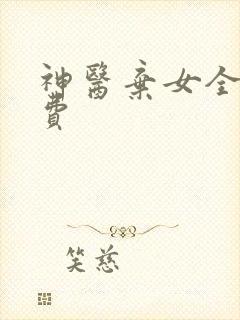 神醫棄女全
費
笑慈